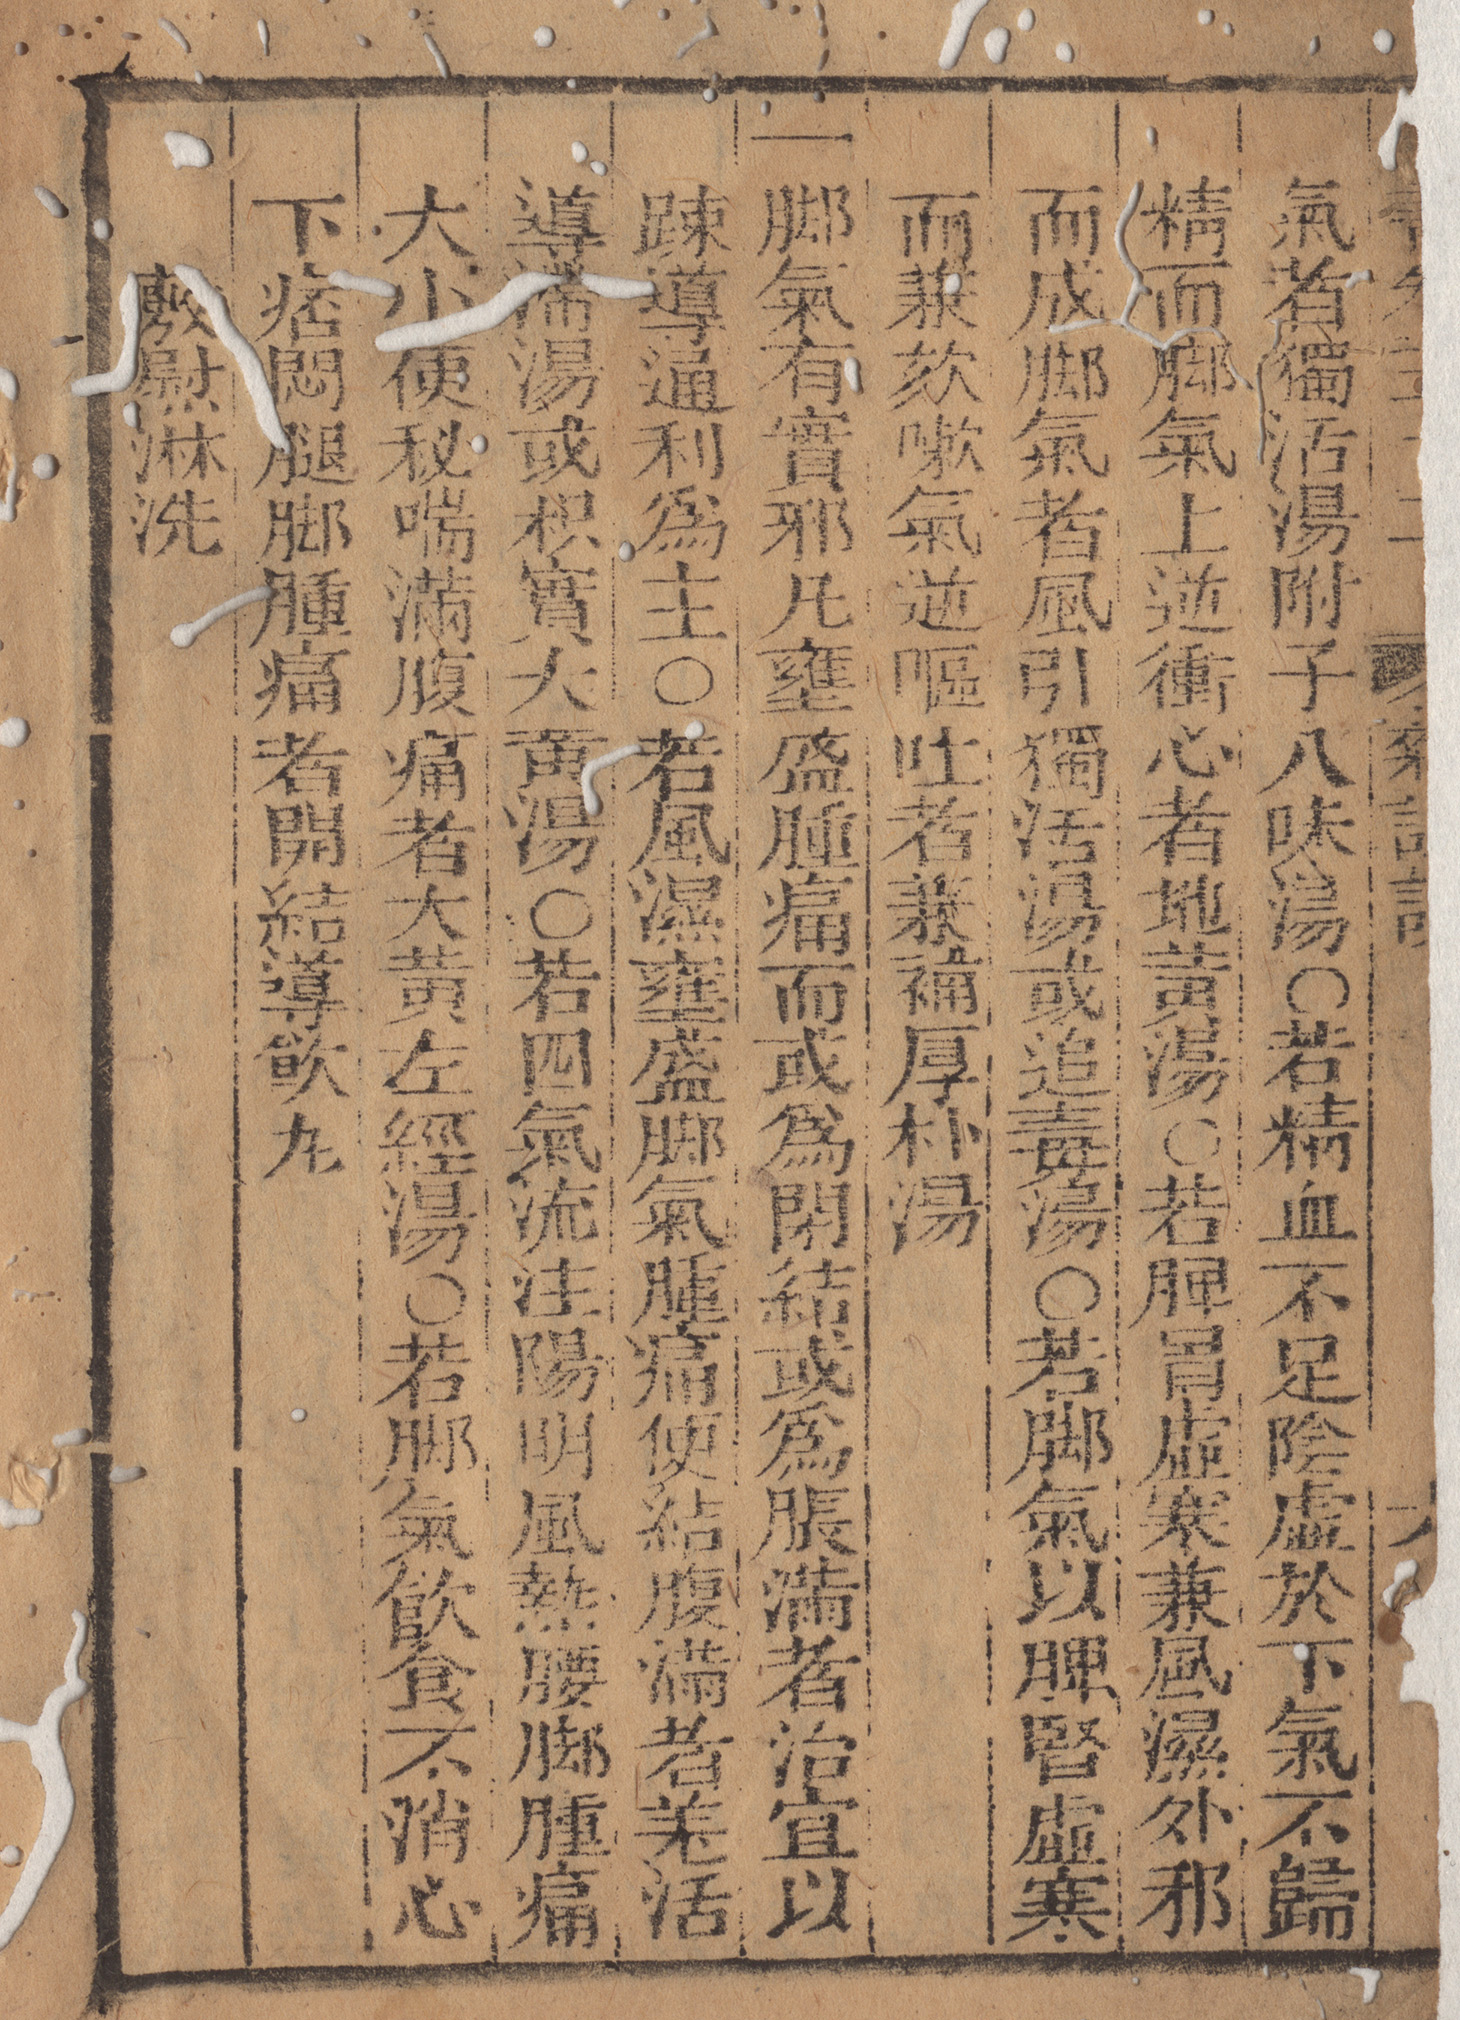 氣者獨活湯附子八味湯○若精血不足陰虛於下氣不歸
精而脚氣上逆衝心者地黃湯○若脾胃虛寒兼風濕外邪
而成脚氣者風引獨活湯或追毒湯○若脚氣以脾腎虛寒
而兼欬嗽氣逆嘔吐者兼補厚朴湯
一脚氣有實邪凡壅盛腫痛而或為閉結或為脹滿者治宜以
踈導通利為主○若風濕壅盛脚氣腫痛便結腹滿者羌活
導滯湯或枳實大黃湯○若四氣流注陽明風熱腰脚腫痛
大小便秘喘滿腹痛者大黃左經湯○若脚氣飲食不消心
下痞悶腿脚腫痛者開結導飲丸
敷熨淋洗